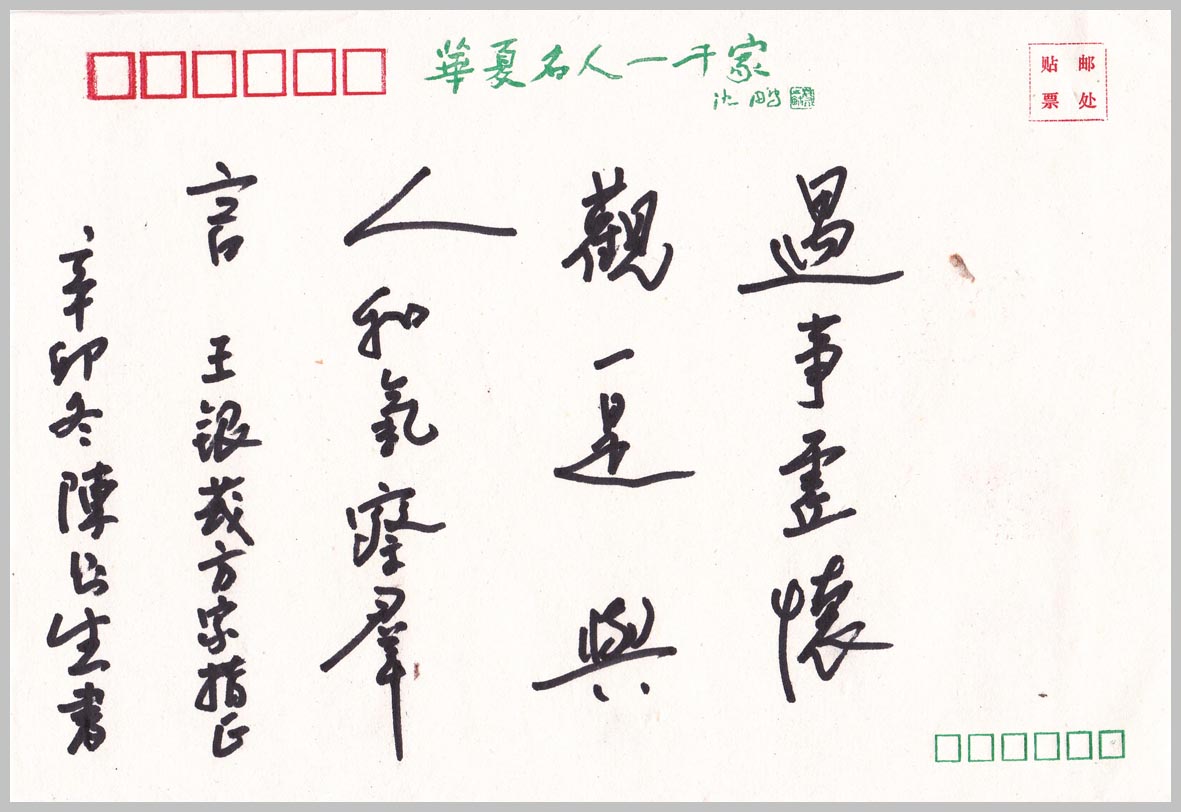 華夏名人一千家
沈鵬
贴邮
票处
遇事虚懷
觀一是與
人和氣察羣
言 王銀茂方家指正
辛卯冬陳 生書